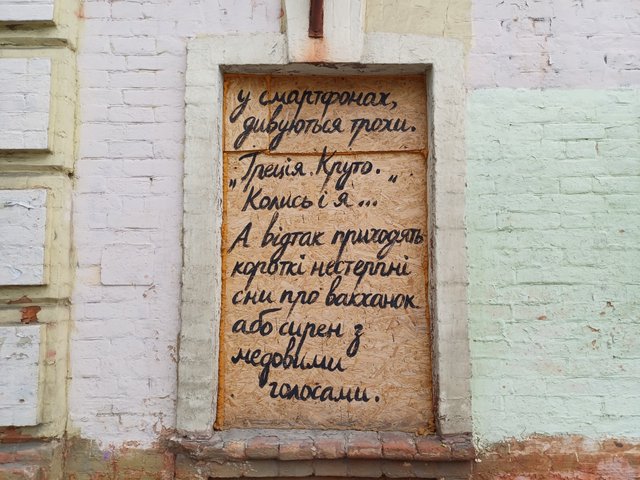 у смартфонах,
дивуються трохи.
„Греція. Круто.
Колись і я... „
А відтак приходять
короткі нестерпні
сни про вакханок
або сирен з
медовими
голосами.